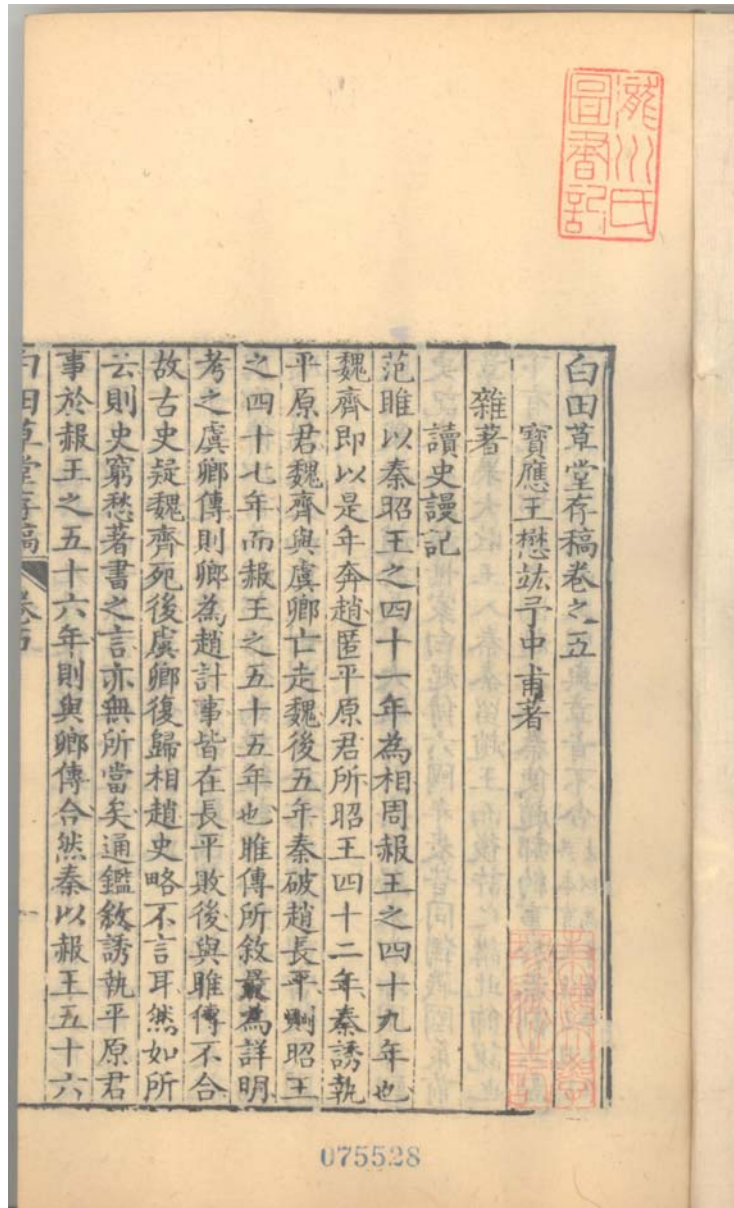 瀧川氏
圖書記
白田草堂存稿卷之五
寶應王懋竑予中甫著
雜著
讀史謾記
范睢以秦昭王之四十一年為相周赧王之四十九年也
魏齊即以是年奔趙匿平原君所昭王四十二年秦誘執
平原君魏齊與虞卿亡走魏後五年秦破趙長平則昭王
之四十七年而赧王之五十五年也睢傳所敘最為詳明
考之虞卿傳則卿為趙計事皆在長平敗後與睢傳不合
故古史疑魏齊死後虞卿復歸相趙史略不言耳然如所
云則史窮愁著書之言亦無所當矣通鑑敘誘執平原君
事於赧王之五十六年則與卿傳合然秦以赧王五十六
白田草堂存稿 卷五
075528